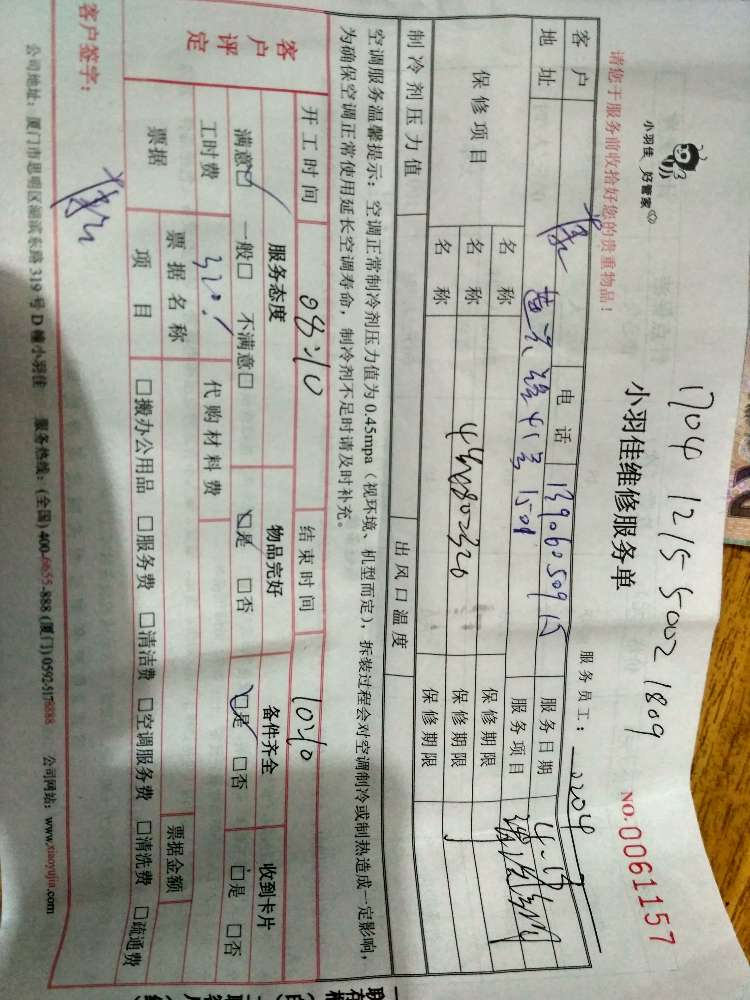 小羽佳 好管家
1704 1215 5002 1809
请您于服务前收拾好您的贵重物品！
小羽佳维修服务单
NO.0061157
服务员工：0204
客户
电话
服务日期
地址
1501
服务项目
保修项目
名称
保修期限
名称
保修期限
名称
保修期限
制冷剂压力值
出风口温度
空调服务温馨提示：空调正常制冷剂压力值为0.45mpa（视环境、机型而定），拆装过程会对空调制冷或制热造成一定影响，
为确保空调正常使用延长空调寿命，制冷剂不足时请及时补充。
开工时间 08:10 结束时间 10:10
客户评定
服务态度 物品完好 备件齐全 收到卡片
满意□ 一般□ 不满意□ □是 □否 □是 □否 □是 □否
工时费 320 代购材料费
票据
票据名称
票据金额
项目 □搬办公用品 □服务费 □清洁费 □空调服务费 □清洗费 □疏通费
客户签字：
公司地址：厦门市思明区湖滨东路319号D幢小羽佳 服务热线：(全国)400-6655-888 (厦门)0592-5178888 公司网站：www.xiaoyujia.com